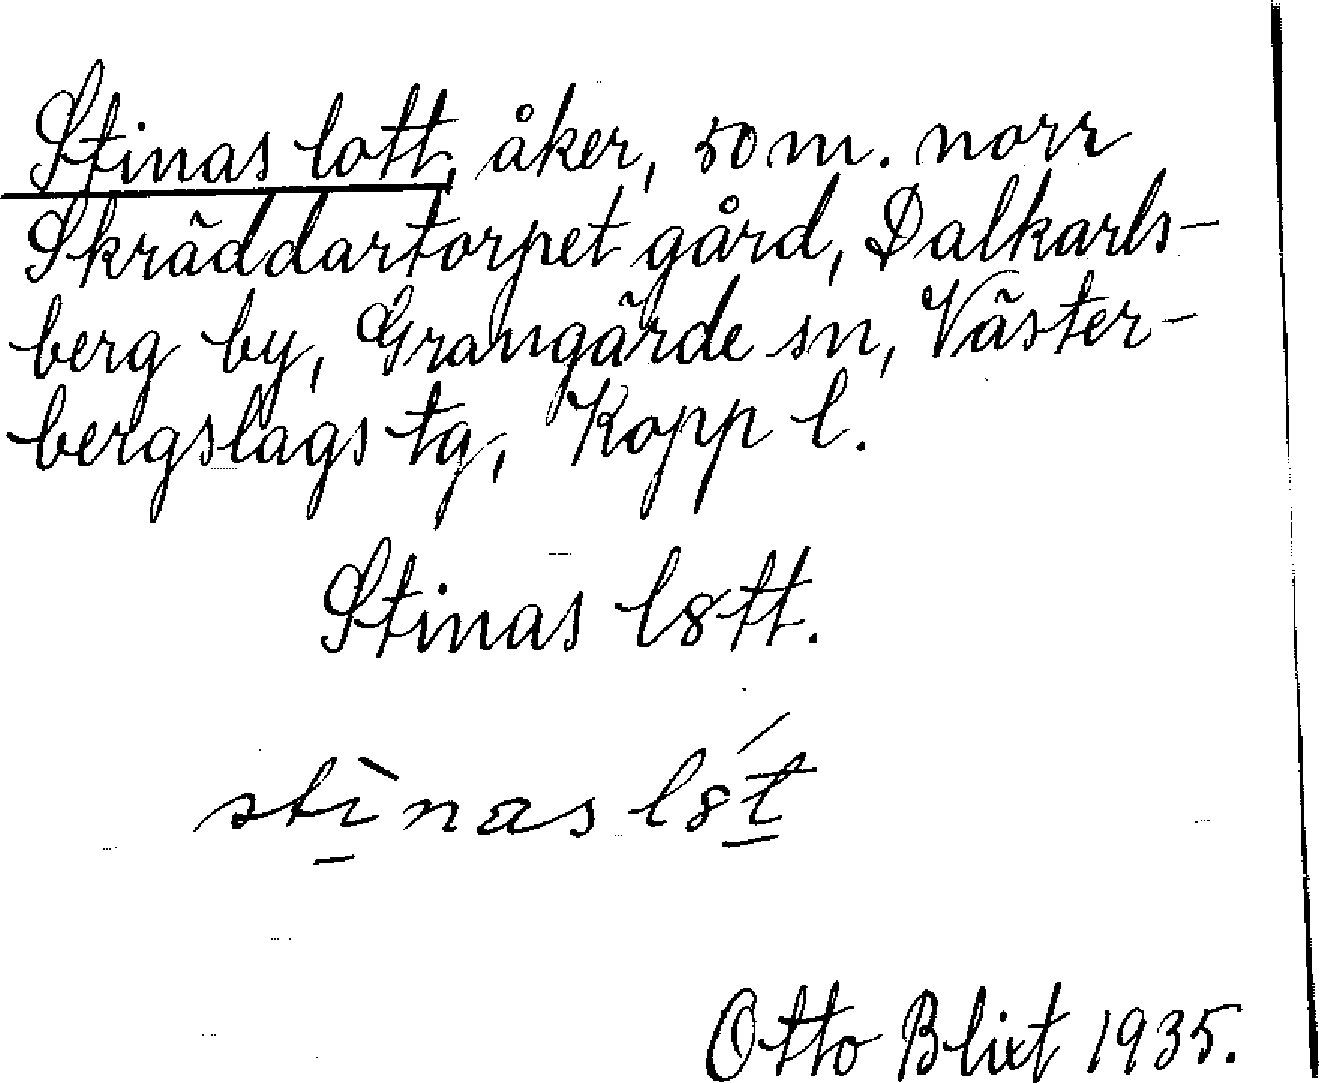 Stinas lott, åker, 50 m. norr
Skräddartorpet gård, Dalkarls-
berg by, Grangärde sn, Väster-
bergslags tg, Kopp l.
Stinas l8tt.
stìnas l8t́
Otto Blixt 1935.